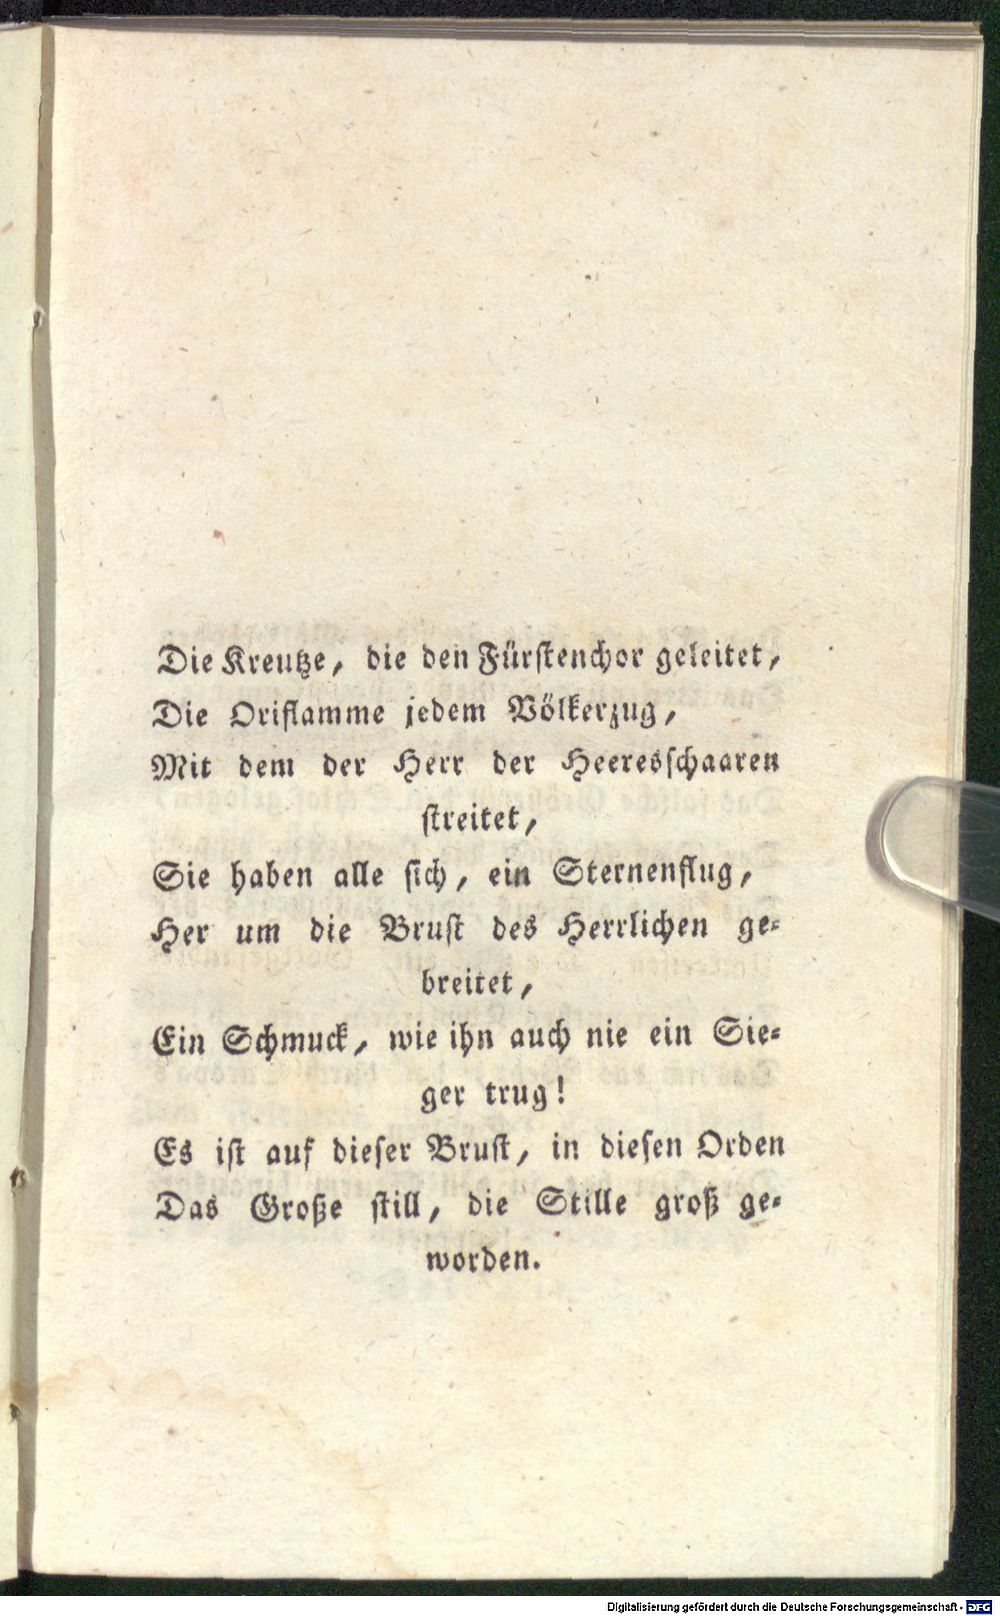 Die Kreutze, die den Fürstenchor geleitet,
Die Oriflamme jedem Völkerzug,
Mit dem der Herr der Heeresschaaren
streitet,
Sie haben alle sich, ein Sternenflug,
Her um die Brust des Herrlichen ge-
breitet,
Ein Schmuck, wie ihn auch nie ein Sie-
ger trug!
Es ist auf dieser Brust, in diesen Orden
Das Große still, die Stille groß ge-
worden.
Digitalisierung gefördert durch die Deutsche Forschungsgemeinschaft - DFG